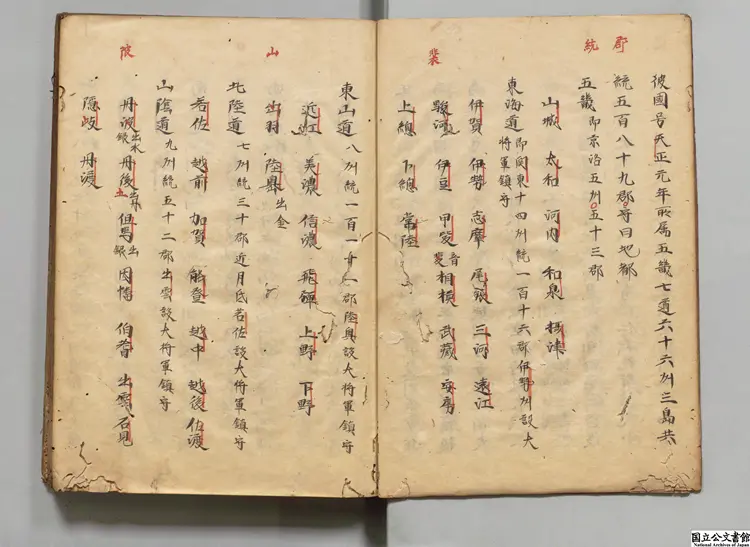 郡
統
裴
彼國号天正元年所属五畿七道六十六州三島共
統五百八十九郡号曰地郡
五畿 即京洛五州五十三郡
山城 太和 河内 和泉 摂津
東海道 即関東十四州統一百十六郡伊勢州設大
将軍鎮守
伊賀 伊勢 志摩 尾張 三河 遠江
駿河 伊豆 甲斐 相模 武藏 安房
上總 下總 常陸
山
陂
東山道 八州統一百一廿一郡陸奥設大将軍鎮守
近江 美濃 信濃 飛騨 上野 下野
出羽 陸奥 出金
北陸道 七州統三十郡近月氐若佐設大将軍鎮守
若佐 越前 加賀 能登 越中 越後 佐渡
山陰道 九州統五十二郡出雲設大将軍鎮守
丹波 出水銀 丹後 但馬 出銀 因幡 伯耆 出雲 石見
隠岐 丹渡
国立公文書館
National Archives of Japan